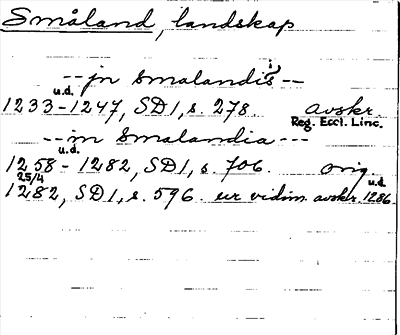 Småland, landskap
--in Smalandis--
u.d.
1233-1247, SD1, s. 278. avskr.
Reg. Eccl. Linc.
--in Smalandia---
u.d.
1258-1282, SD1, s. 706. orig.
25/4 u.d.
1282, SD1, s. 596. ur vidim. avskr. 1286